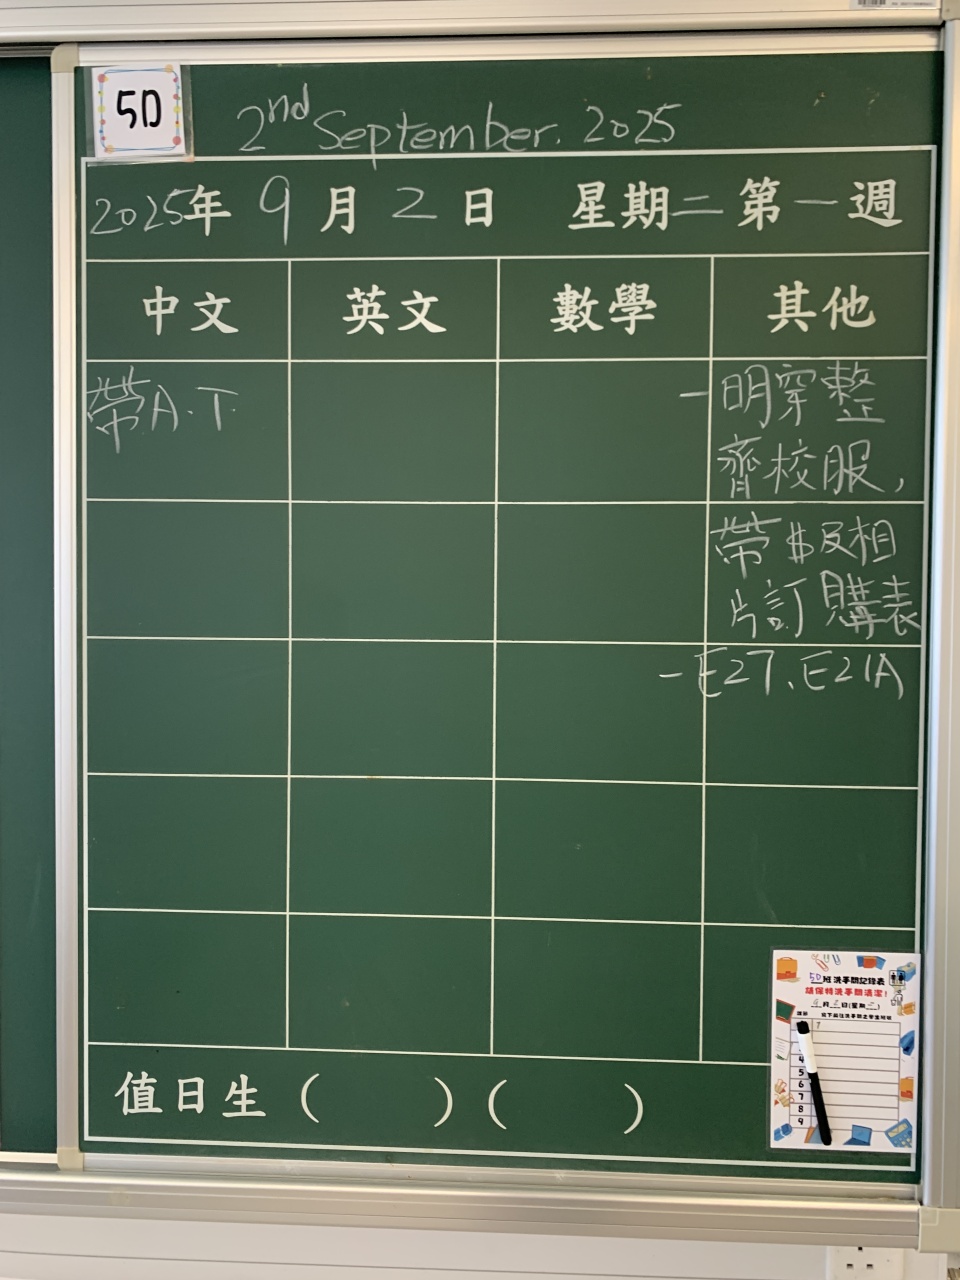 5D
2nd September. 2025
2025年 9 月 2 日 星期二 第一週
中文 英文 數學 其他
帶A.T
-明穿整
齊校服，
帶$及相
片訂購表
-E27、E21A
5D班洗手間記錄表
請保持洗手間清潔！
9月2日(星期二)
4
5
6
7
8
9
值日生（ ）（ ）